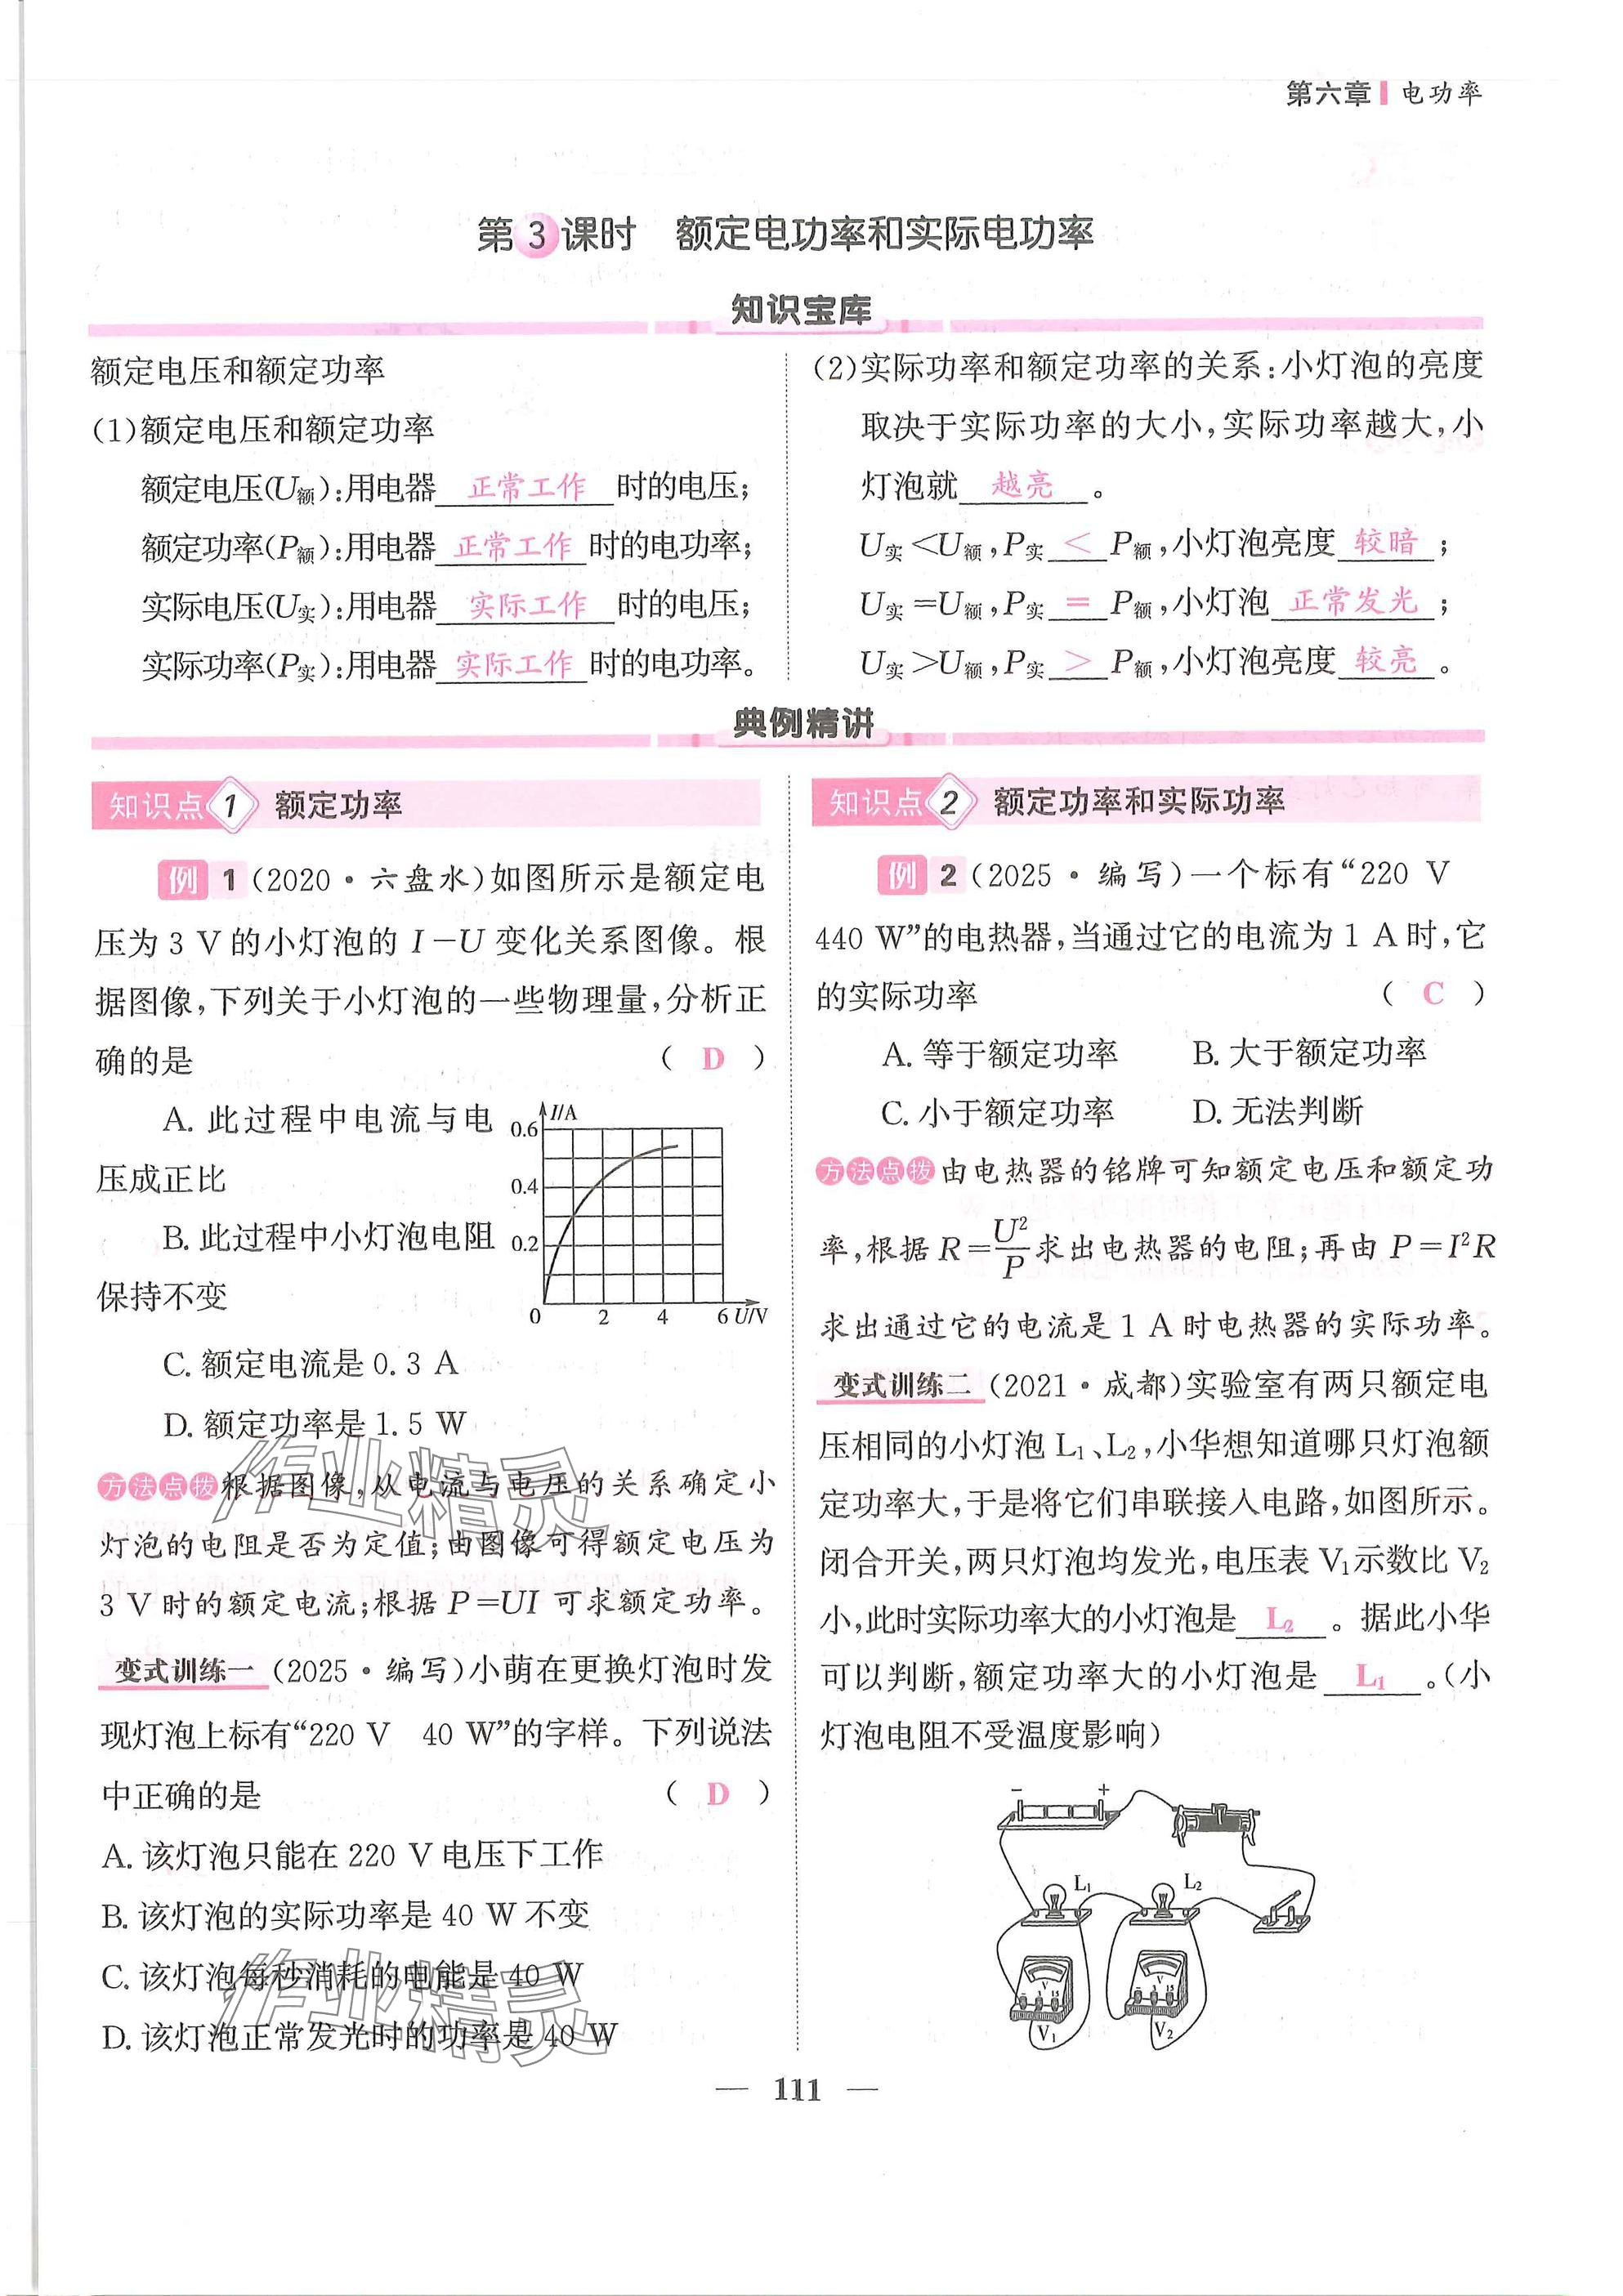 第六章 电功率
第3课时 额定电功率和实际电功率
知识宝库
额定电压和额定功率
(1)额定电压和额定功率
额定电压(U额):用电器 正常工作 时的电压;
额定功率(P额):用电器 正常工作 时的电功率;
实际电压(U实):用电器 实际工作 时的电压;
实际功率(P实):用电器 实际工作 时的电功率。
(2)实际功率和额定功率的关系:小灯泡的亮度
取决于实际功率的大小,实际功率越大,小
灯泡就 越亮 。
U实<U额,P实 < P额,小灯泡亮度 较暗 ;
U实=U额,P实 = P额,小灯泡 正常发光 ;
U实>U额,P实 > P额,小灯泡亮度 较亮 。
典例精讲
知识点 1 额定功率
例 1 (2020·六盘水)如图所示是额定电
压为 3 V 的小灯泡的 I-U 变化关系图像。根
据图像,下列关于小灯泡的一些物理量,分析正
确的是 ( D )
A. 此过程中电流与电
压成正比
B. 此过程中小灯泡电阻
保持不变
I/A
0.6
0.4
0.2
0 2 4 6 U/V
C. 额定电流是 0.3 A
D. 额定功率是 1.5 W
方法点拨 根据图像,从电流与电压的关系确定小
灯泡的电阻是否为定值;由图像可得额定电压为
3 V 时的额定电流;根据 P=UI 可求额定功率。
变式训练一 (2025·编写)小萌在更换灯泡时发
现灯泡上标有“220 V 40 W”的字样。下列说法
中正确的是 ( D )
A. 该灯泡只能在 220 V 电压下工作
B. 该灯泡的实际功率是 40 W 不变
C. 该灯泡每秒消耗的电能是 40 W
D. 该灯泡正常发光时的功率是 40 W
知识点 2 额定功率和实际功率
例 2 (2025·编写)一个标有“220 V
440 W”的电热器,当通过它的电流为 1 A 时,它
的实际功率 ( C )
A. 等于额定功率 B. 大于额定功率
C. 小于额定功率 D. 无法判断
方法点拨 由电热器的铭牌可知额定电压和额定功
率,根据 R=U²/P 求出电热器的电阻;再由 P=I²R
求出通过它的电流是 1 A 时电热器的实际功率。
变式训练二 (2021·成都)实验室有两只额定电
压相同的小灯泡 L₁、L₂,小华想知道哪只灯泡额
定功率大,于是将它们串联接入电路,如图所示。
闭合开关,两只灯泡均发光,电压表 V₁示数比 V₂
小,此时实际功率大的小灯泡是 L₂ 。据此小华
可以判断,额定功率大的小灯泡是 L₁ 。(小
灯泡电阻不受温度影响)
- +
L₁ L₂
V V
- 3 15
V₁ V₂
作业精灵
作业精灵
— 111 —